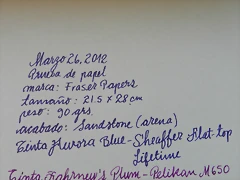 Marzo 26, 2012
Prueba de papel
marca: Fraser Papers
tamaño: 21.5 x 28 cm
peso: 90 grs.
acabado: Sandstone (arena)
Tinta Aurora Blue - Sheaffer Flat-top
Lifetime
Tinta Fahrney's Plum - Pelikan M650